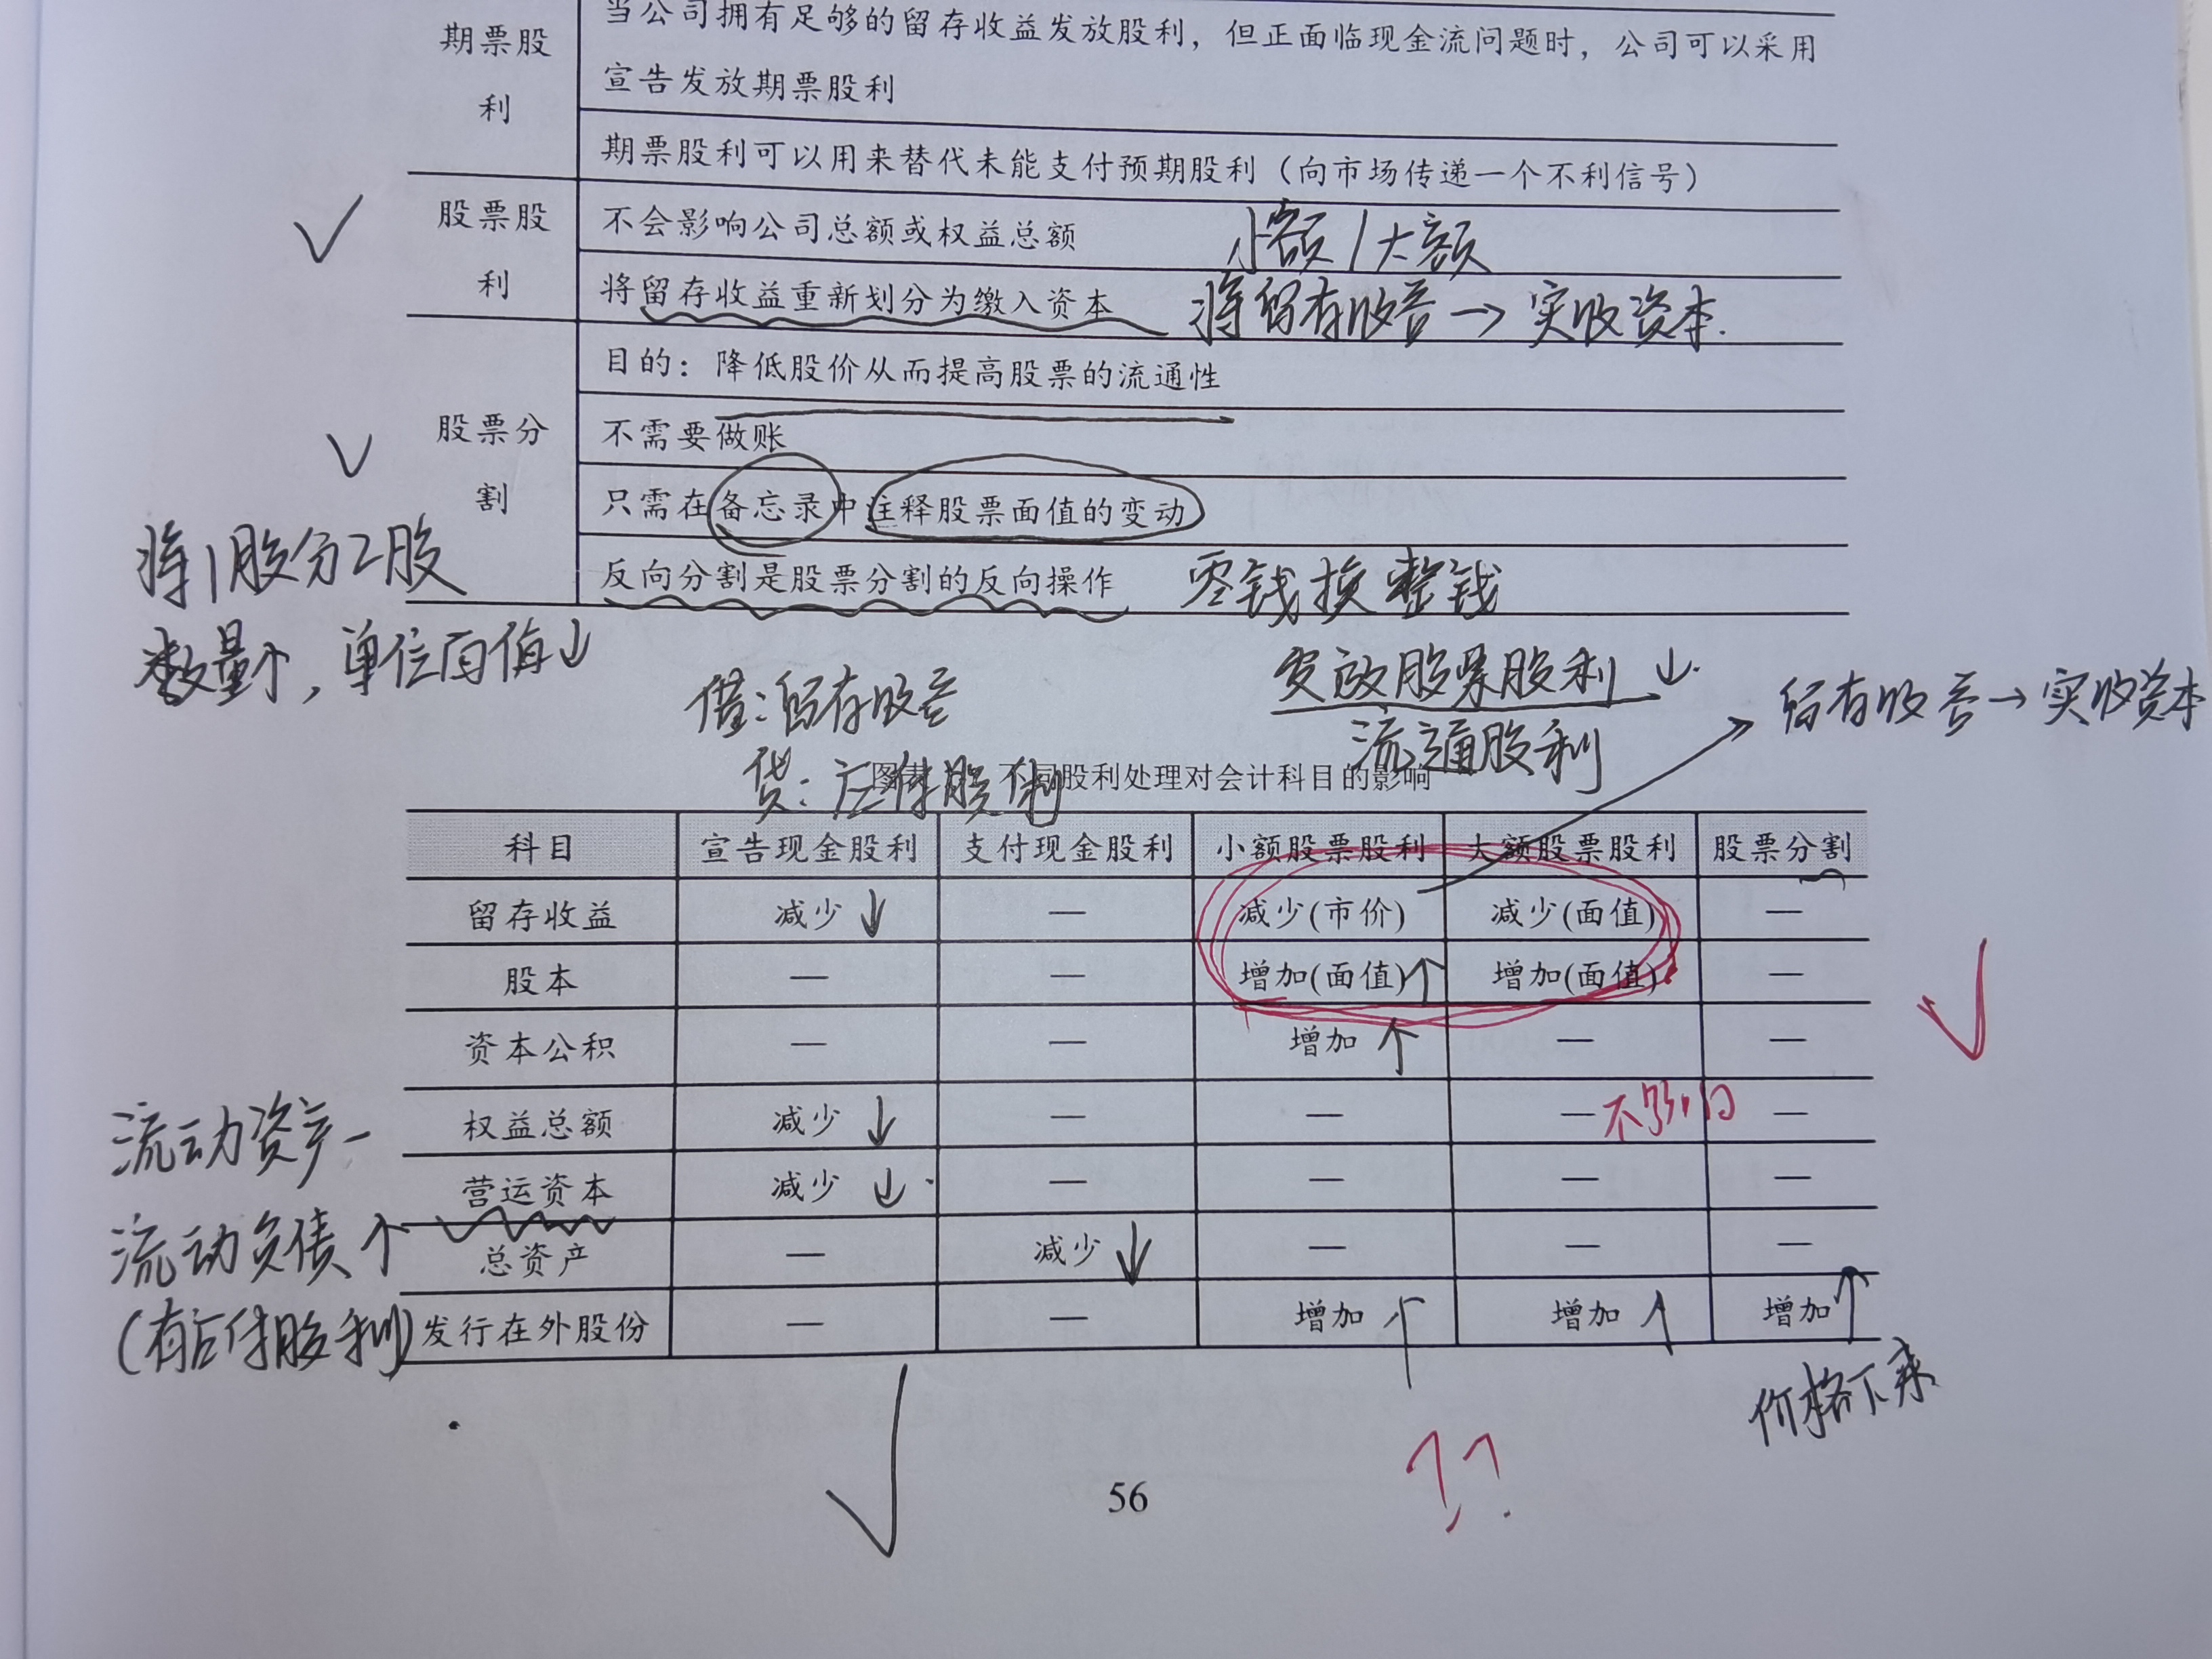 期票股利
当公司拥有足够的留存收益发放股利，但正面临现金流问题时，公司可以采用
宣告发放期票股利
期票股利可以用来替代未能支付预期股利（向市场传递一个不利信号）
股票股利
不会影响公司总额或权益总额
小额/大额
将留存收益重新划分为缴入资本
将留存收益→实收资本.
股票分割
目的：降低股价从而提高股票的流通性
不需要做账
只需在备忘录中注释股票面值的变动
反向分割是股票分割的反向操作
零钱换整钱
将1股分2股
数量个，单位面值↓
借：留存收益
贷：应付股利
发放股票股利↓.
流通股利
留存收益→实收资本
不同股利处理对会计科目的影响
科目 宣告现金股利 支付现金股利 小额股票股利 大额股票股利 股票分割
留存收益 减少 ↓ — 减少(市价) 减少(面值) —
股本 — — 增加(面值)↑ 增加(面值) —
资本公积 — — 增加 ↑ — —
权益总额 减少 ↓ — — — 不影响 —
营运资本 减少 ↓ — — — —
总资产 — 减少 ↓ — — —
发行在外股份 — — 增加 ↑ 增加 ↑ 增加↑
流动资产-
流动负债↑
(有应付股利)
价格下来
56
??